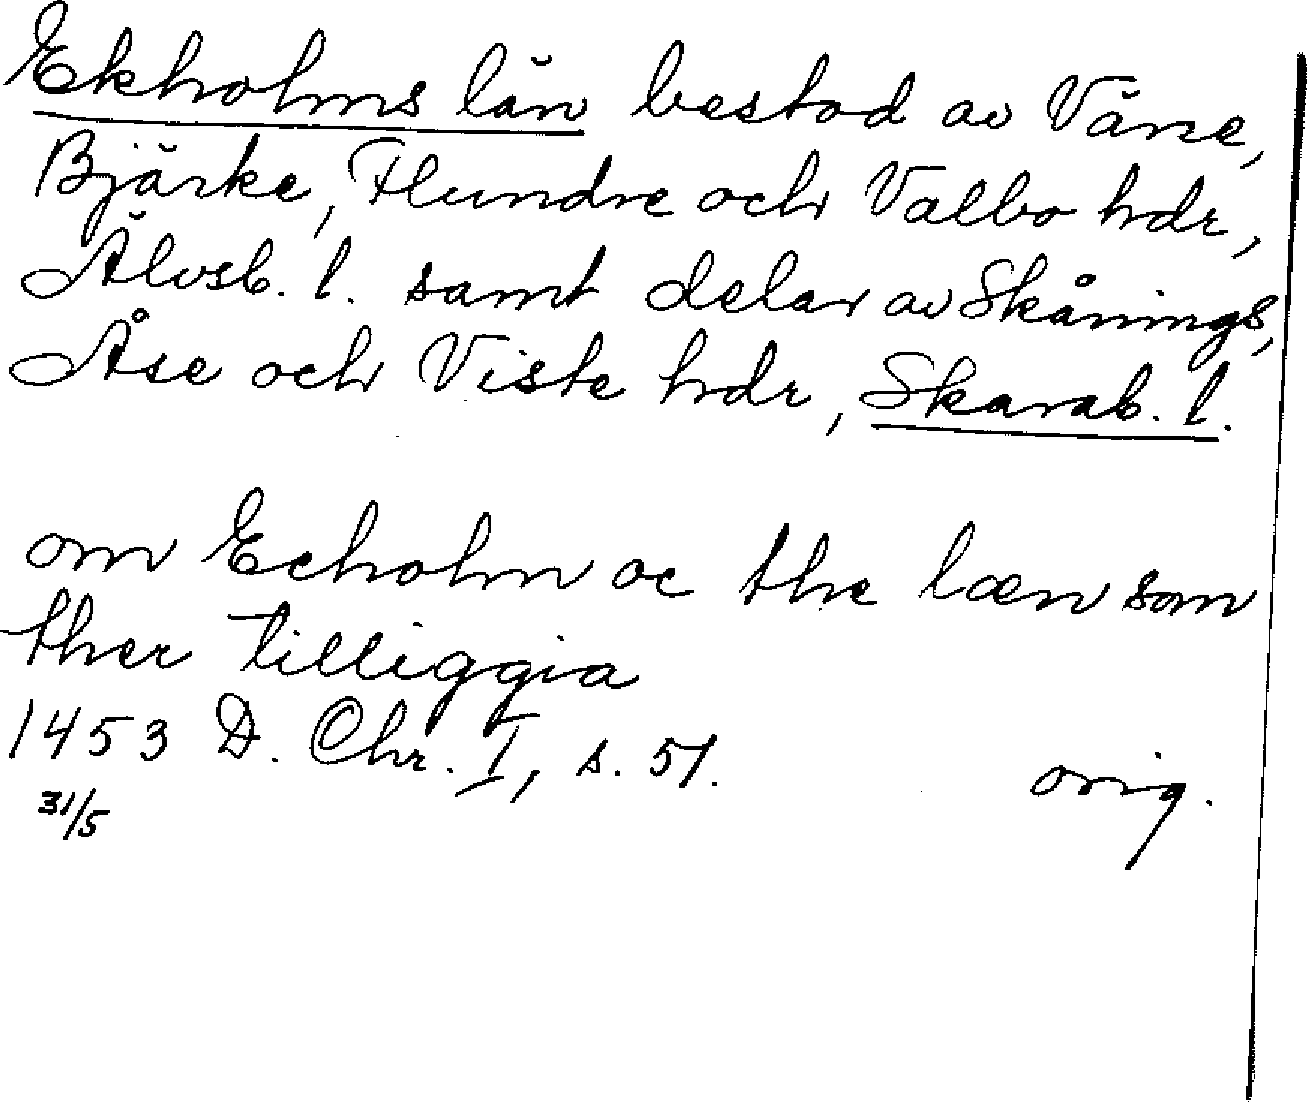 Ekholms län bestod av Väne,
Bjärke, Flundre och Valbo hdr,
Älvsb. l. samt delar av Skånings,
Åse och Viste hdr, Skarab. l.
om Echolm oc the læn som
ther tilliggia
1453 D. Chr. I, s. 51.
orig.
31/5